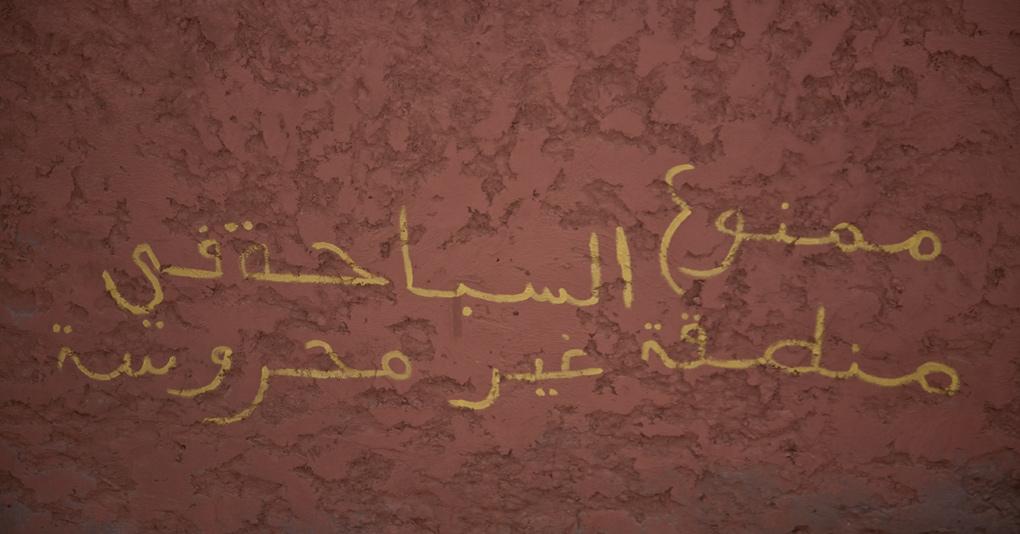 ممنوع السباحة في
منطقة غير محروسة